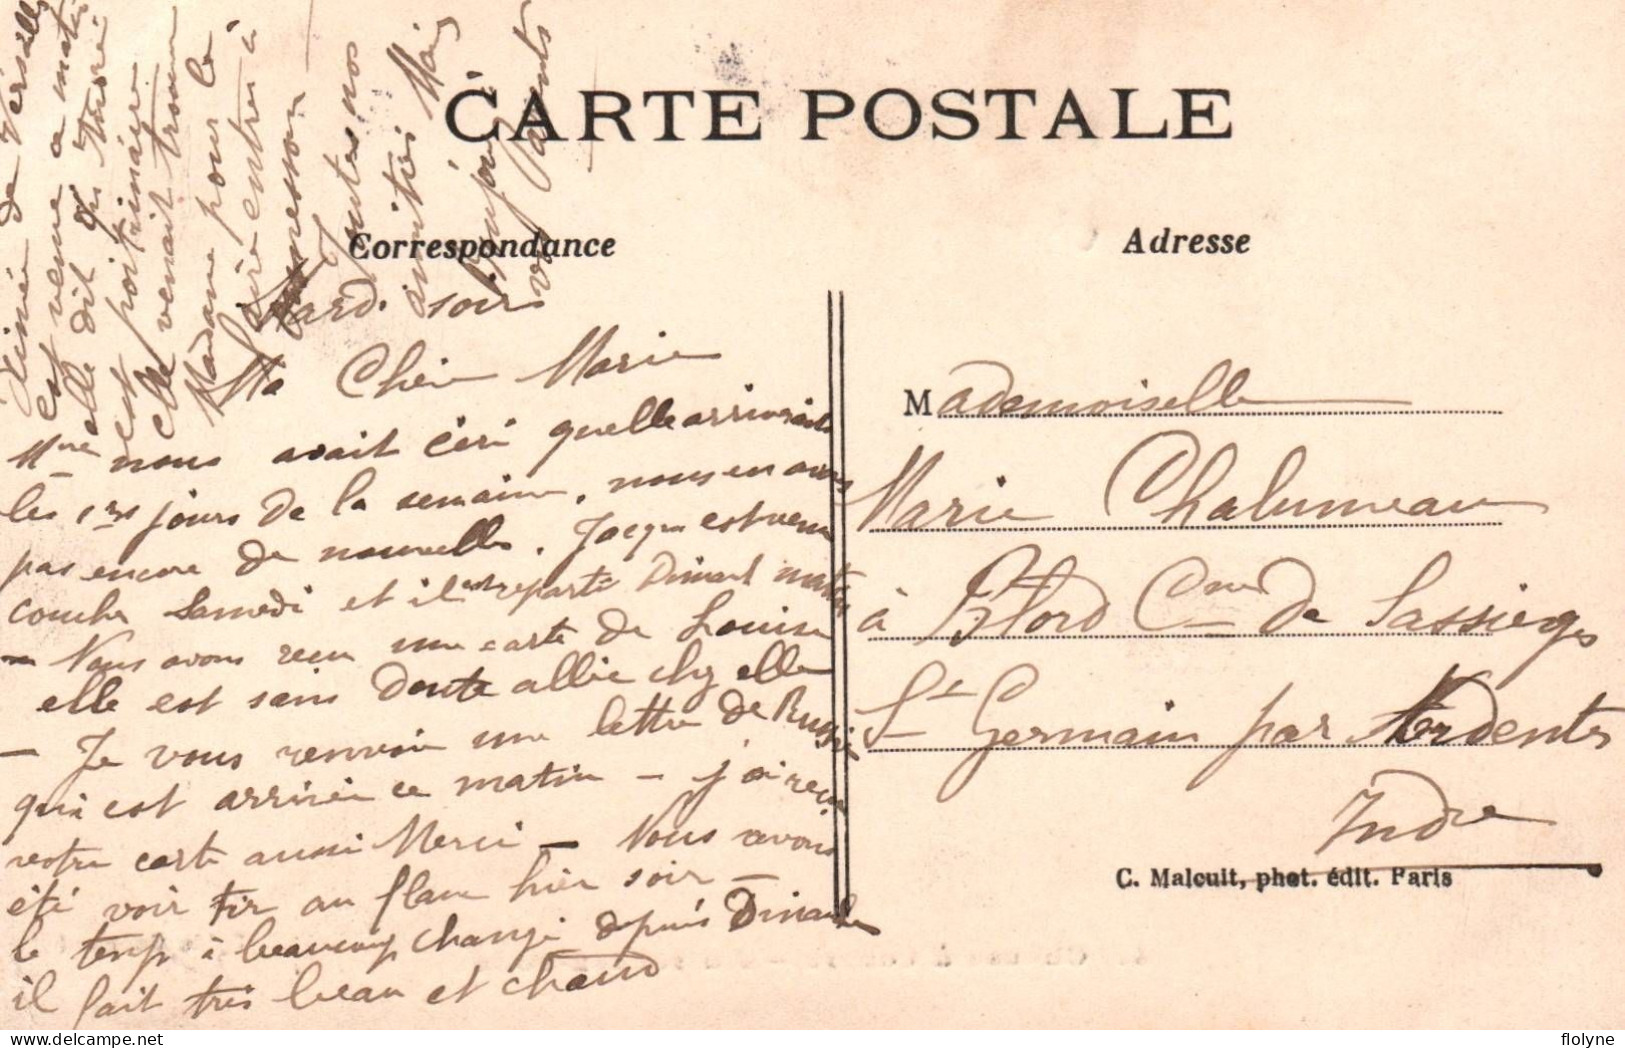 CARTE POSTALE
Correspondance
Adresse
Mardi soir
Ma Chère Marie
Mme nous avait écri quelle arriverait
les 1ers jours de la semaine. nous en avons
pas encore de nouvelles. Jacques est venu
couche Samedi et il est reparti Dimanche matin
Nous avons recu une carte de Louise
elle est sains doute allée chez elle
– Je vous renvoie une lettre de Russie
qui est arrivée ce matin – j'ai recu
votre carte aussi Merci – Nous avons
été voir tir au flanc hier soir –
le temps à beaucoup changé depuis Dimanche
il fait très beau et chaud
de Versailles
est venue ce matin
elle dit qu
est poitrinaire
elle venait trouver
Madame pour la
faire entrer à
Ormesson
Toutes nos
amitiés Mais
toujours
vos Parents
Mademoiselle
Marie Chalumeau
à Blord Cne de Sassierges
St Germain par Ardentes
Indre
C. Malcuit, phot. édit. Paris
flolyne